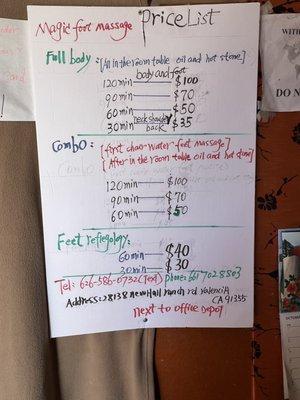 Magic foot massage Price List
Full body: [All in the room table oil and hot stone]
body and feet
120 min $100
90 min $70
60 min $50
30 min neck shoulder back $35
Combo: [first chair water feet massage]
[After in the room table oil and hot stone]
120 min $100
90 min $70
60 min $50
Feet reflegology:
60 min $40
30 min $30
Tel: 626-586-0732 (Text) phone: 661 702 8803
Address: 28138 newHall ranch rd valenciA
CA 91355
next to office Depot
DO NOT